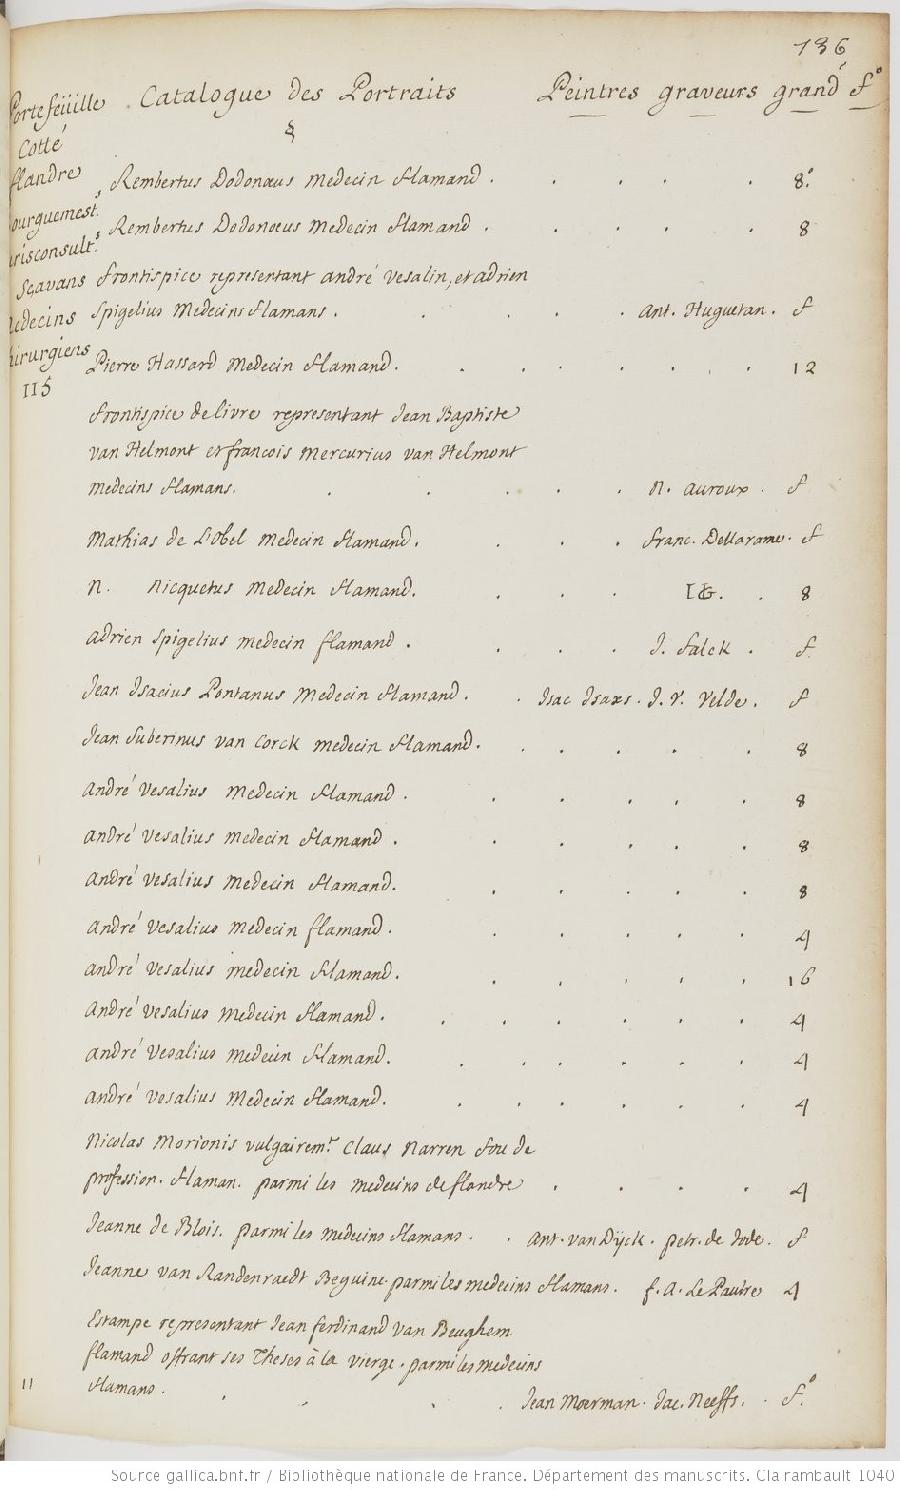 136
Portefeüille Catalogue des Portraits Peintres graveurs grand fº
Cotté
flandre
Rembertus Dodonaus Medecin flamand . . . . . 8º
ourguemest.
Rembertus Dodonoeus Medecin flamand . . . . . 8
urisconsult.
Sçavans
frontispice representant andré Vesalin, et adrien
Medecins
Spigelius Medecins flamans . . . . . ant. Huguetan . f
hirurgiens
Pierre Hassard Medecin flamand . . . . . . . 12
115
frontispice de livre representant Jean Baptiste
van Helmont et francois Mercurius van Helmont
medecins flamans. . . . . . N. auroux . f
Mathias de L'obel medecin flamand . . . . franc. Dellarame . f
N. Nicquetus Medecin flamand . . . . IG. . 8
adrien Spigelius medecin flamand . . . . J. falck . f.
Jean Isacius Pontanus Medecin flamand . . Isac Isaxs . J. V. Velde . f
Jean Suberinus van Corck medecin flamand . . . . . . 8
andré Vesalius medecin flamand . . . . . . 8
andré Vesalius medecin flamand . . . . . . 8
andré Vesalius Medecin flamand . . . . . . 8
andré Vesalius medecin flamand . . . . . . 4
andré Vesalius medecin flamand . . . . . . 16
andré Vesalius medecin flamand . . . . . . . 4
andré Vesalius medecin flamand . . . . . . 4
andré Vesalius Medecin flamand . . . . . . 4
Nicolas Morionis vulgairem.t Claus Narren fou de
profession. flaman. parmi les medecins de flandre . . . . 4
Jeanne de Blois. parmi les medecins flamans . . ant. van Dÿck . petr. de Jode . f
Jeanne van Randenraedt Beguine. parmi les medecins flamans . f. a. Le Pautre 4
Estampe representant Jean ferdinand van Beughem
flamand offrant ses Theses à la vierge . parmi les medecins
11 flamans . . . . . Jean Moerman . Jac. Neeffs . . fº.
Source gallica.bnf.fr / Bibliothèque nationale de France. Département des manuscrits. Clairambault 1040